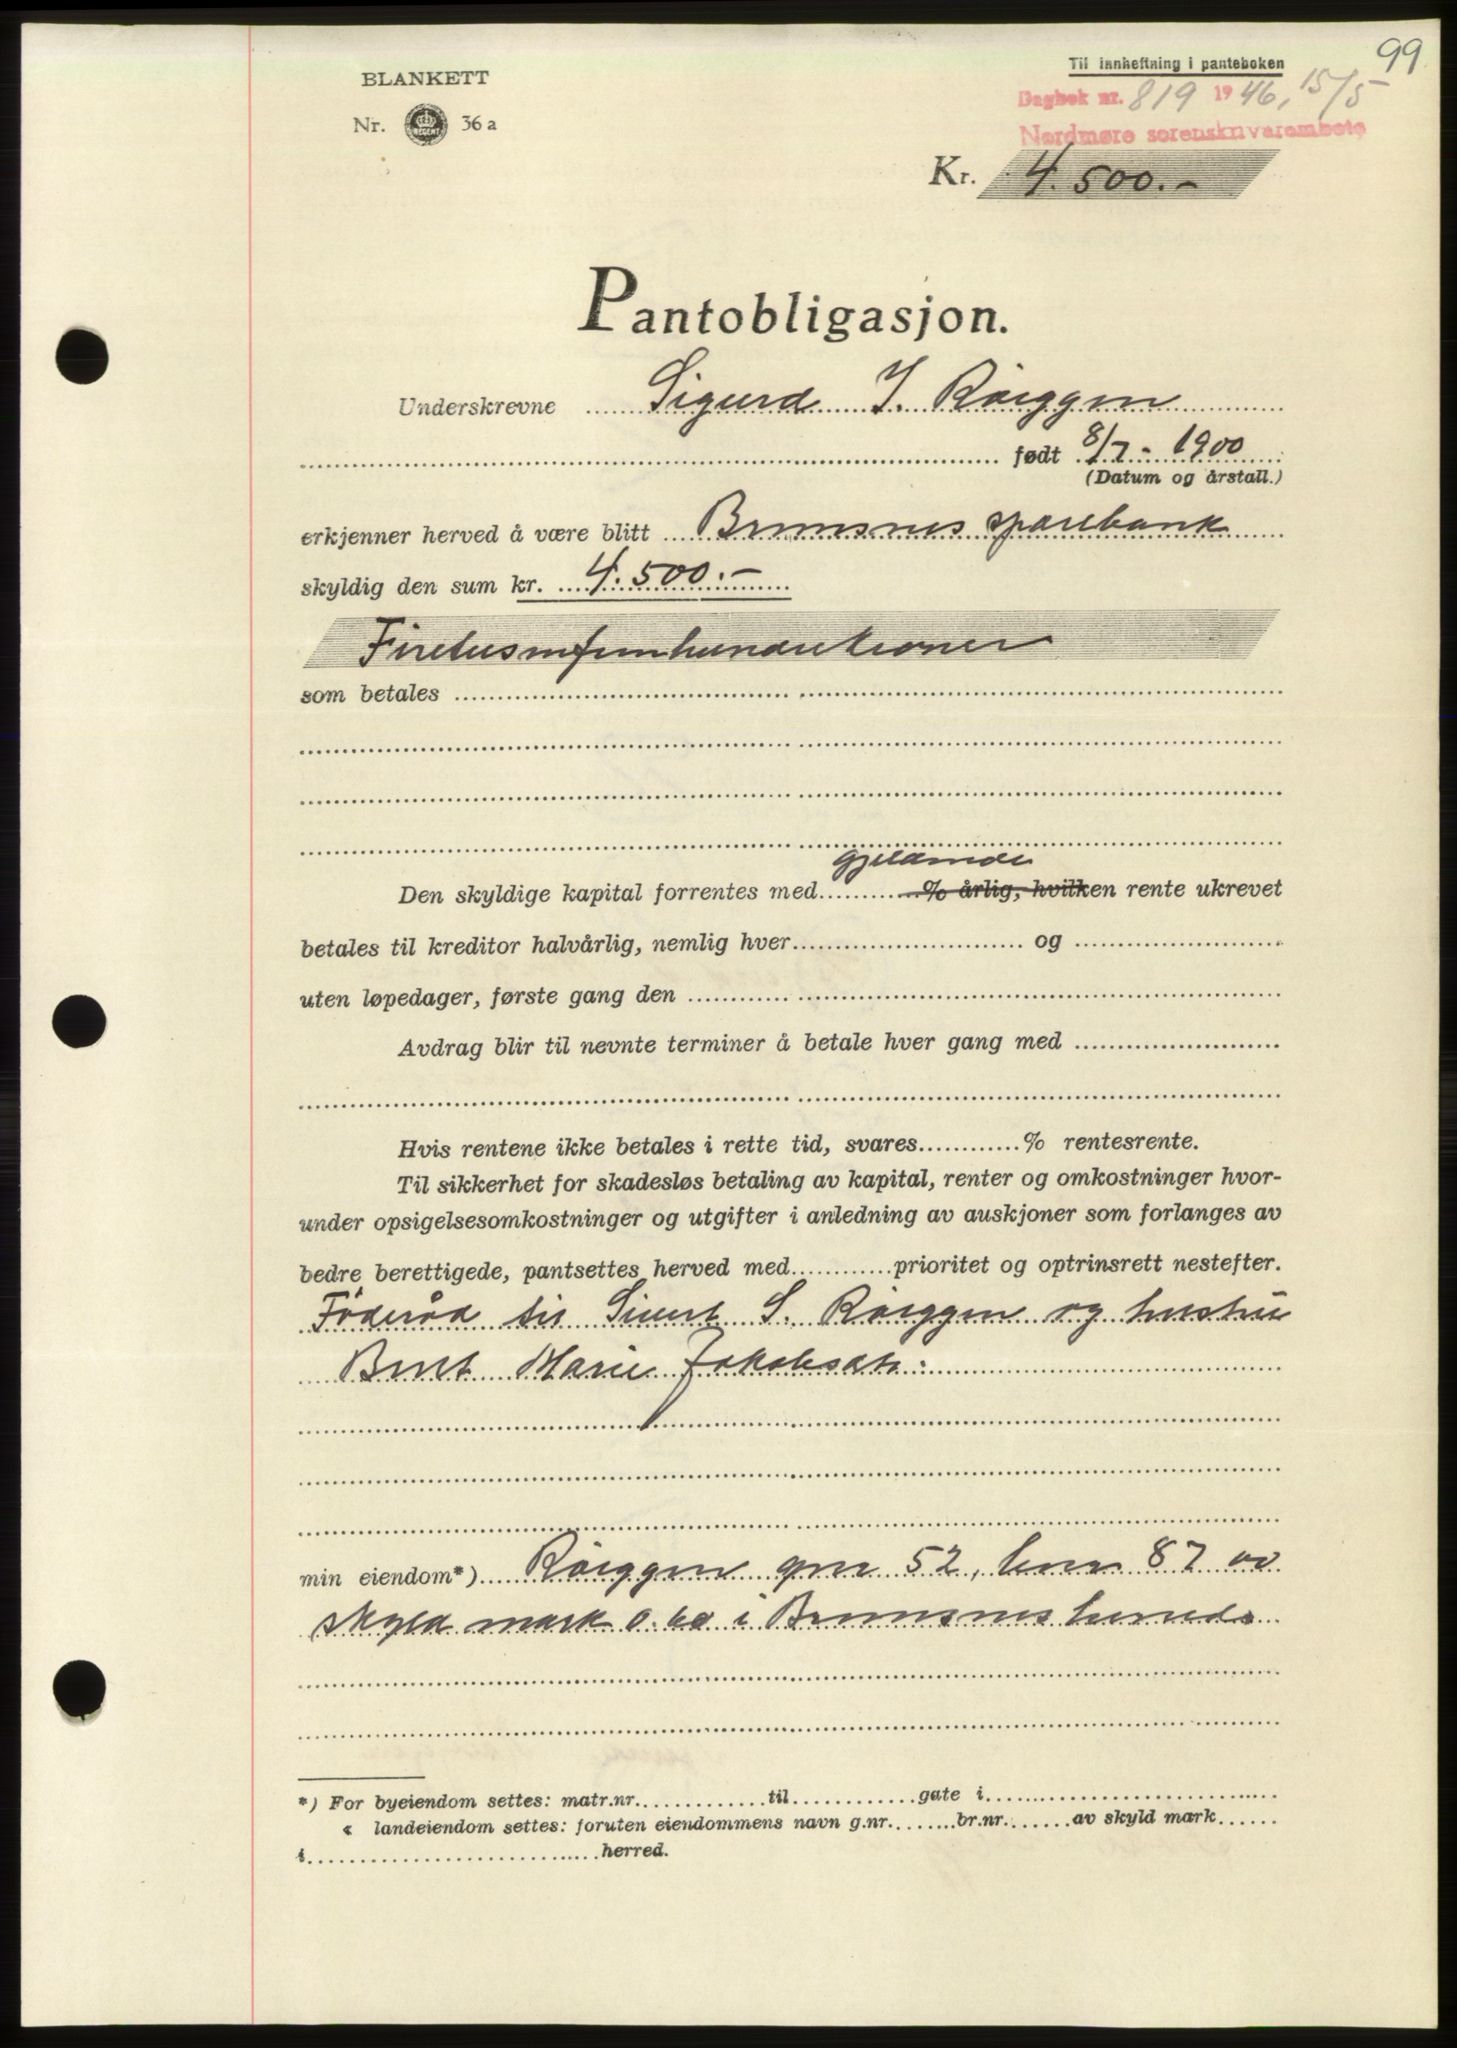 99
Til innheftning i panteboken
BLANKETT
Nr. 36 a
Dagbok nr. 819 1946, 15/5
Nordmøre sorenskrivarembete
Kr. 4.500.-
Pantobligasjon.
Underskrevne Sigurd J. Røeggen
født 8/7-1900
(Datum og årstall.)
erkjenner herved å være blitt Bremsnes sparebank
skyldig den sum kr. 4.500.-
Firetusenfemhundrekroner
som betales
gjeldende
Den skyldige kapital forrentes med % årlig, hvilken rente ukrevet
betales til kreditor halvårlig, nemlig hver og
uten løpedager, første gang den
Avdrag blir til nevnte terminer å betale hver gang med
Hvis rentene ikke betales i rette tid, svares % rentesrente.
Til sikkerhet for skadesløs betaling av kapital, renter og omkostninger hvor-
under opsigelsesomkostninger og utgifter i anledning av auskjoner som forlanges av
bedre berettigede, pantsettes herved med prioritet og optrinsrett nestefter.
Föderåd til Sivert S. Røeggen og hustru
Beret Marie Jakobsdtr.
min eiendom*) Røeggen gnr 52, bnr 87 av
skyld mark 0.60 i Bremsnes herred.
*) For byeiendom settes: matr.nr. til gate i
« landeiendom settes: foruten eiendommens navn g.nr. br.nr. av skyld mark
i herred.